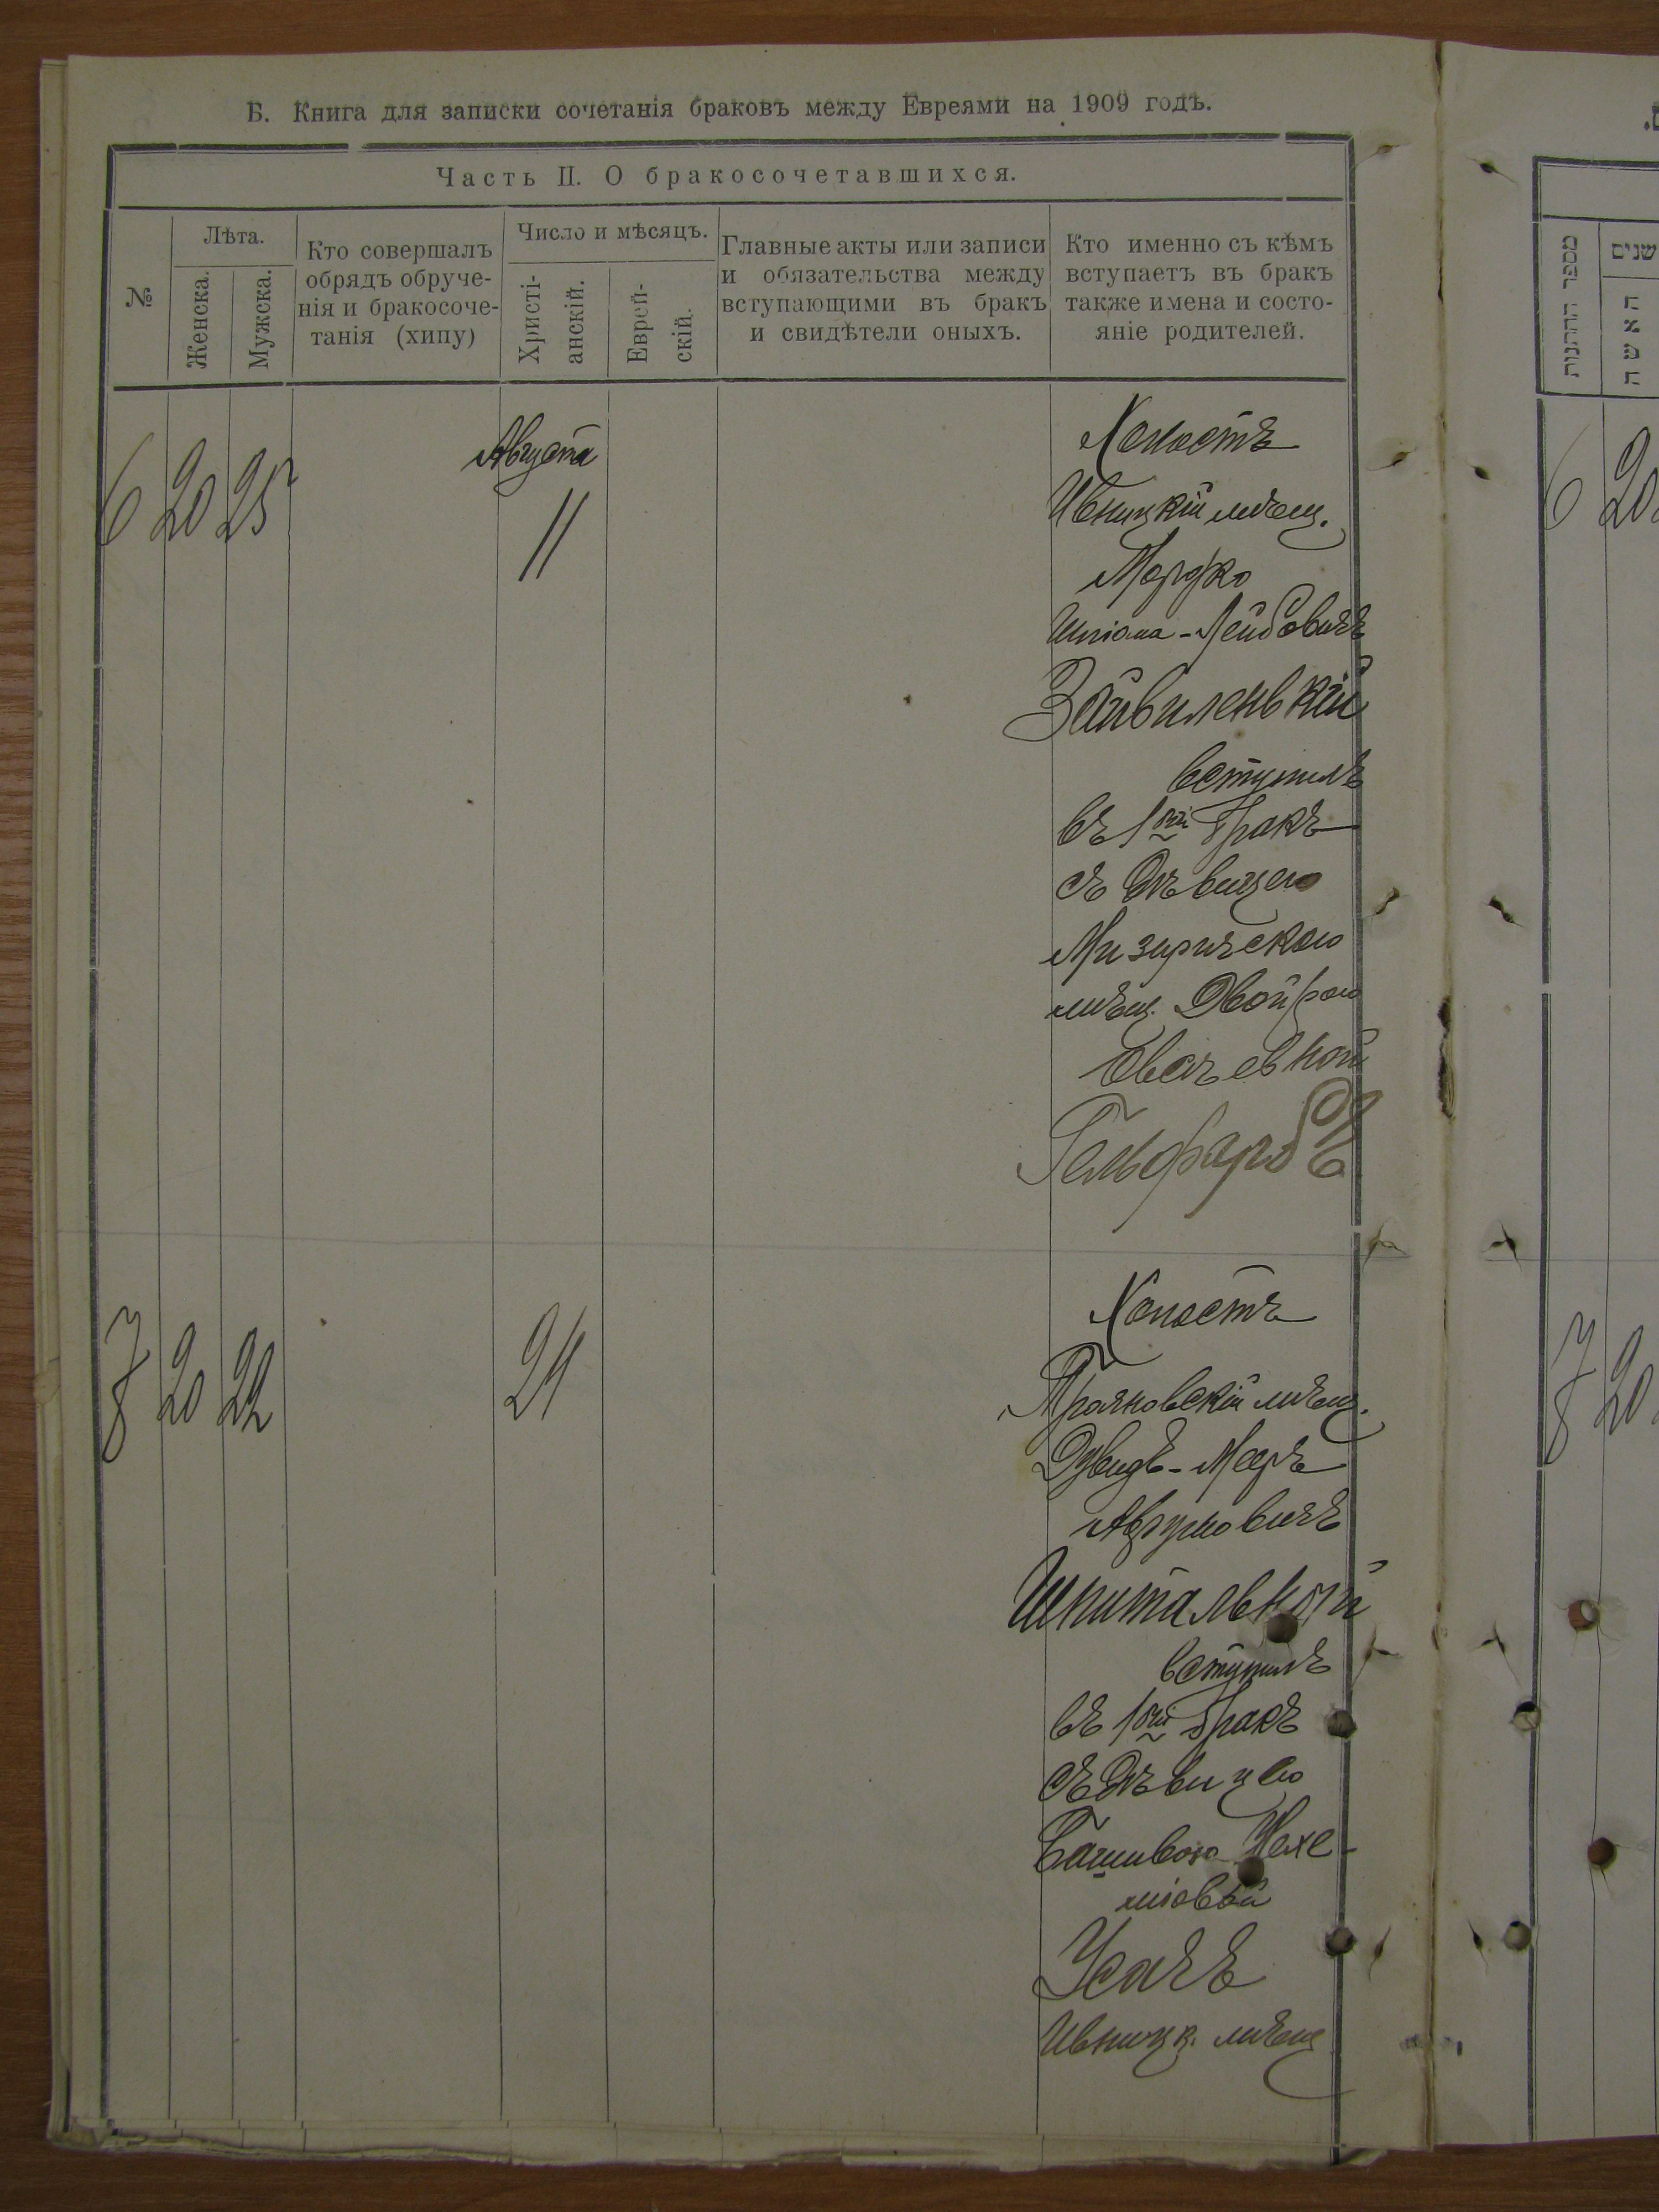 Б. Книга для записки сочетанія браковъ между Евреями на 1909 годъ.
Часть II. О бракосочетавшихся.
№
Лѣта.
Женска.
Мужска.
Кто совершалъ
обрядъ обруче-
нія и бракосоче-
танія (хипу)
Число и мѣсяцъ.
Христі-
анскій.
Еврей-
скій.
Главные акты или записи
и обязательства между
вступающими въ бракъ
и свидѣтели оныхъ.
Кто именно съ кѣмъ
вступаетъ въ бракъ
также имена и состо-
яніе родителей.
6 20 25
Августа
11
Холостъ
Ивницкій мѣщ.
Мордко
Шліома-Лейбовичъ
Зайвиленькій
вступилъ
въ 1ый бракъ
съ дѣвицею
Мизиричскою
мѣщ. Двойрою
Овсѣевной
Гельфарбъ
7 20 22
21
Холостъ
Трояновскій мѣщ.
Дувидъ-Мееръ
Аврумовичъ
Шпитальный
вступилъ
въ 1ый бракъ
съ дѣвицею
Башивою Нехе-
міовой
Усачъ
Ивницк. мѣщ
מספר החתונות
שנים
האשה
6 20
7 20